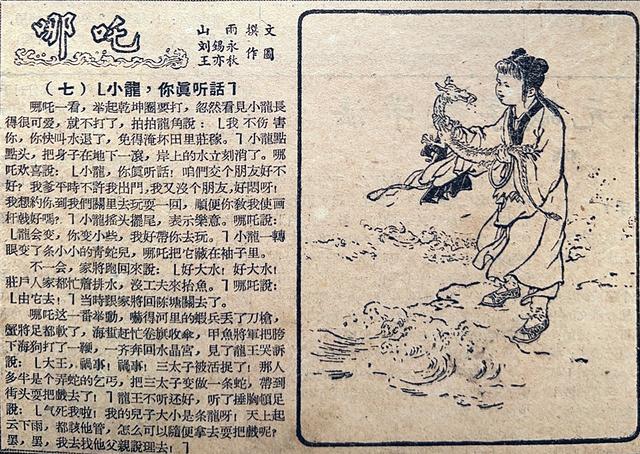 哪吒
山雨 撰文
刘錫永
王亦秋 作圖
（七）「小龍，你眞听話」
哪吒一看，举起乾坤圈要打，忽然看見小龍長
得很可爱，就不打了，拍拍龍角說：「我不伤害
你，你快叫水退了，免得淹坏田里莊稼。」小龍點
點头，把身子在地下一滾，岸上的水立刻消了。哪
吒欢喜說：「小龍，你眞听話！咱們交个朋友好不
好？我爹平時不許我出門，我又沒个朋友，好悶呀！
我想約你到我們關里去玩耍一回，順便你敎我使画
杆戟好嗎？」小龍摇头擺尾，表示樂意。哪吒說：
「龍会变，你变小些，我好帶你去玩。」小龍一轉
眼变了条小小的青蛇兒，哪吒把它藏在袖子里。
不一会，家將跑回來說：「好大水！好大水！
莊戶人家都忙着排水，沒工夫來抬魚。」哪吒說：
「由它去！」当時跟家將回陈塘關去了。
哪吒这一番举動，嚇得河里的蝦兵丢了刀槍，
蟹將足都軟了，海蜇赶忙卷旗收傘，甲魚將軍把胯
下海狗打了一鞭，一齐奔回水晶宮，見了龍王哭訴
說：「大王，禍事！禍事！三太子被活捉了！那人
多半是个弄蛇的乞丐，把三太子变做一条蛇，帶到
街头耍把戲去了！」龍王不听还好，听了捶胸頓足
說：「气死我啦！我的兒子大小是条龍呀！天上起
云下雨，都該他管，怎么可以隨便拿去耍把戲呢？
罢，罢，我去找他父親說理去！」